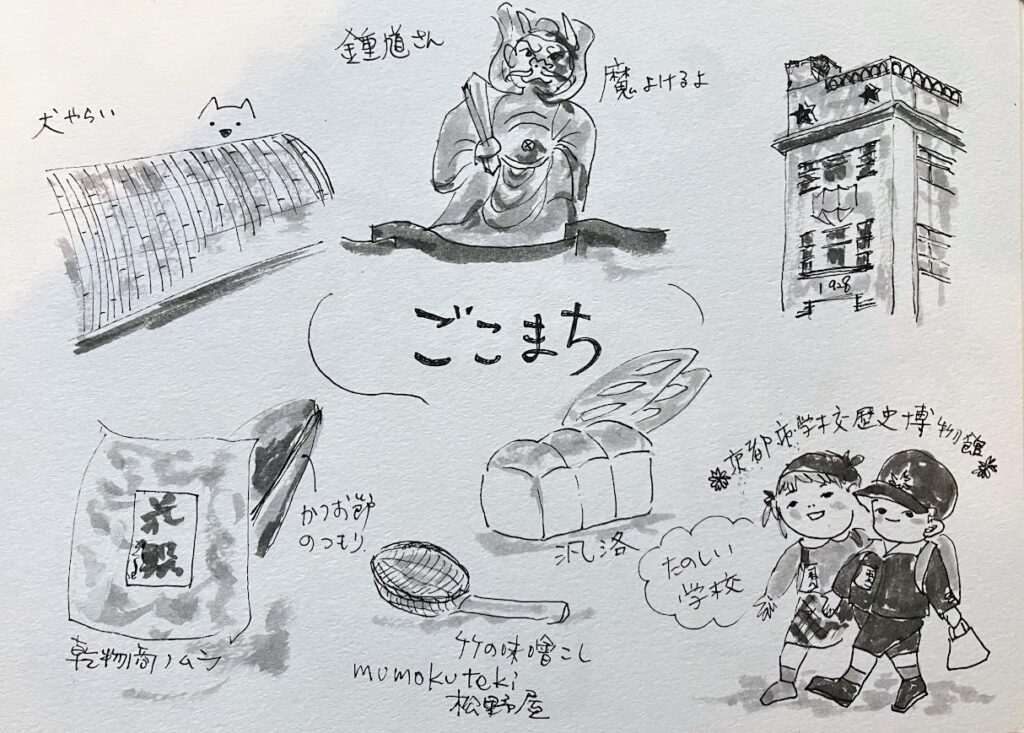 鍾馗さん
魔よけるよ
犬やらい
1928
ごこまち
京都市学校歴史博物館
かつお節
のつもり
汎洛
たのしい
学校
乾物商ノムラ
竹の味噌こし
mumokuteki
松野屋